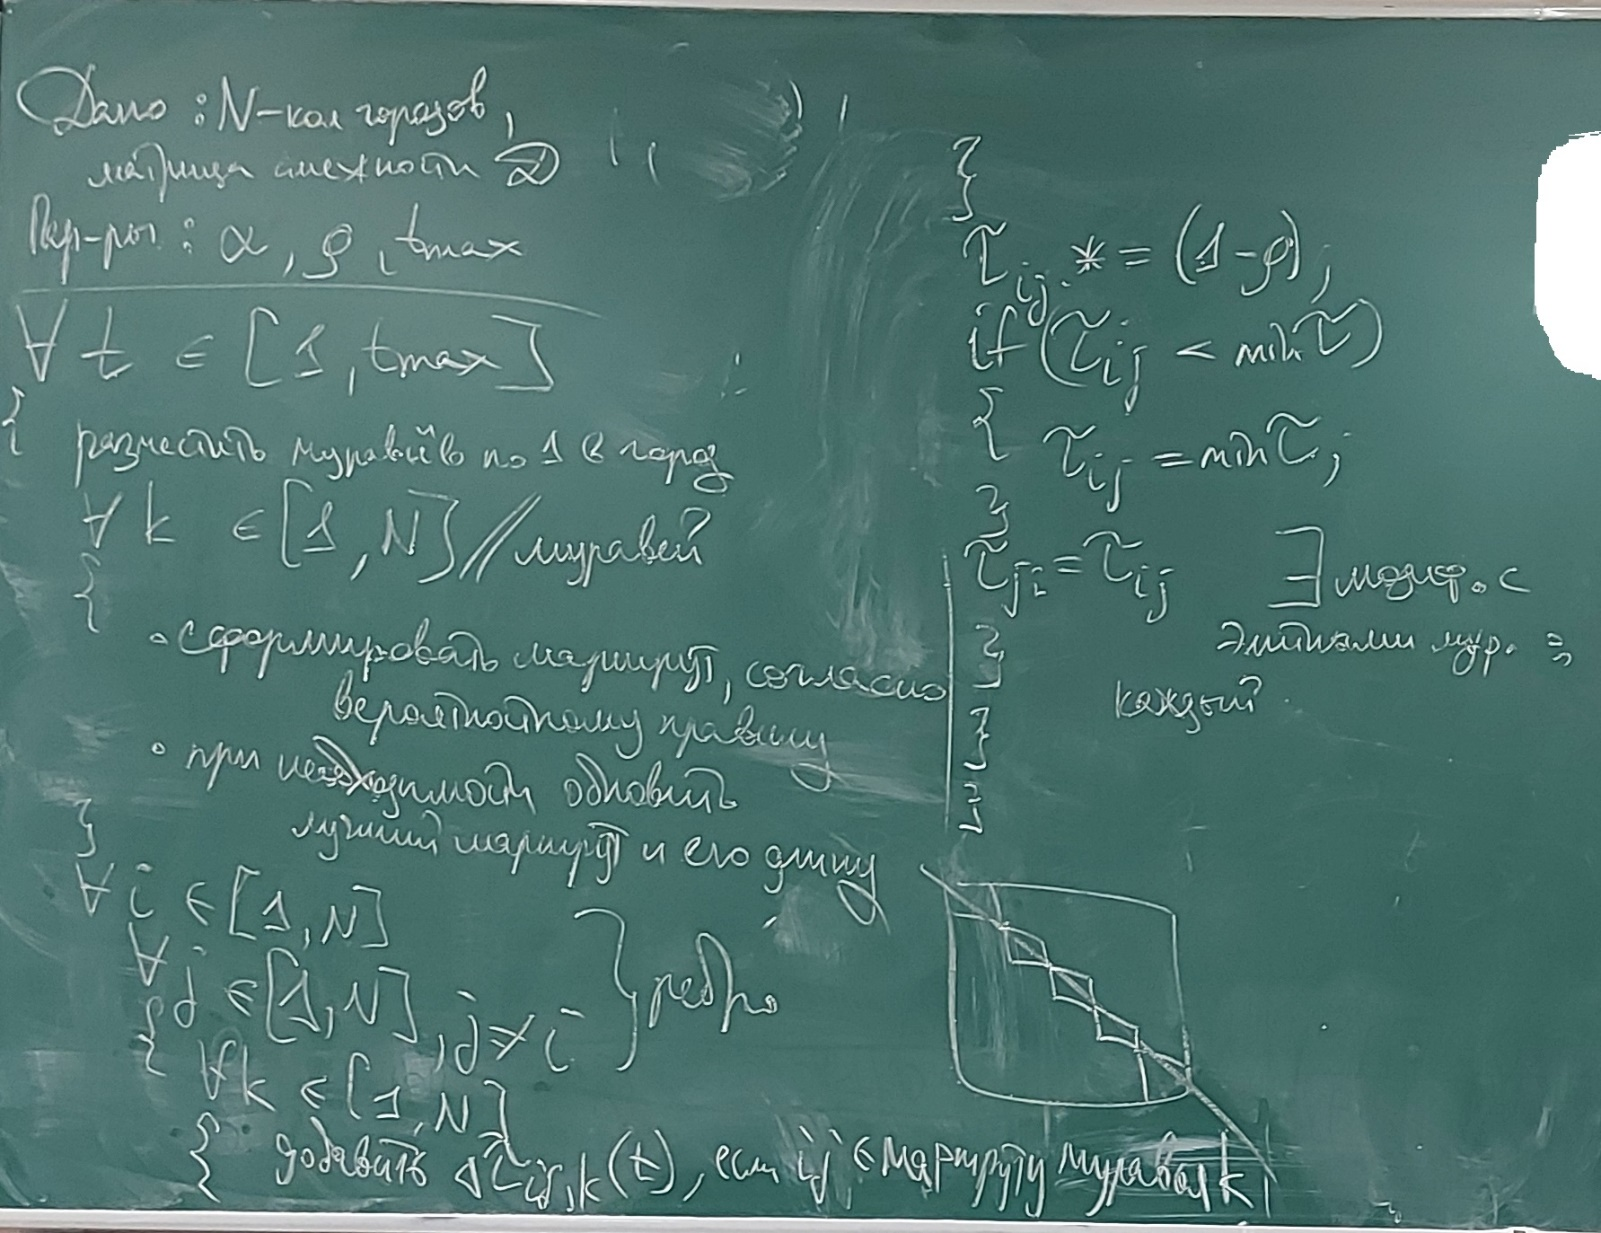 Дано : N-кол городов,
матрица смежности D
Пар-ры : α, ρ, tmax
∀ t ∈ [1, tmax]
{ разместить муравьёв по 1 в город
∀ k ∈ [1, N] // муравей
{
• сформировать маршрут, согласно
вероятностному правилу
• при необходимости обновить
лучший маршрут и его длину
}
∀ i ∈ [1, N]
∀ j ∈ [1, N], j ≠ i } ребро
{ ∀k ∈ [1, N]
{ добавить Δτij,k(t), если ij ∈ маршруту муравья k
}
τij *= (1-ρ);
if (τij < minτ)
{ τij = minτ;
}
τji = τij
}
}
}
∃ модиф. с
элитными мур.
каждый